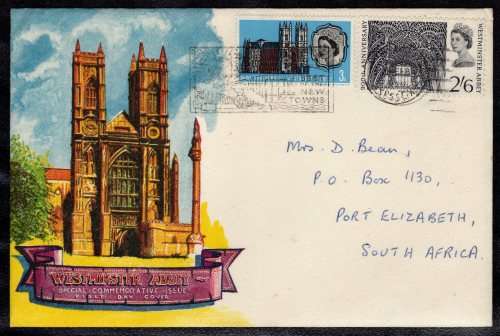 3D
900TH ANNIVERSARY
WESTMINSTER ABBEY
2/6
NEW
TOWNS
Mrs. D. Bean,
P.O. Box 1130,
PORT ELIZABETH,
SOUTH AFRICA.
WESTMINSTER ABBEY
SPECIAL COMMEMORATIVE ISSUE
FIRST DAY COVER